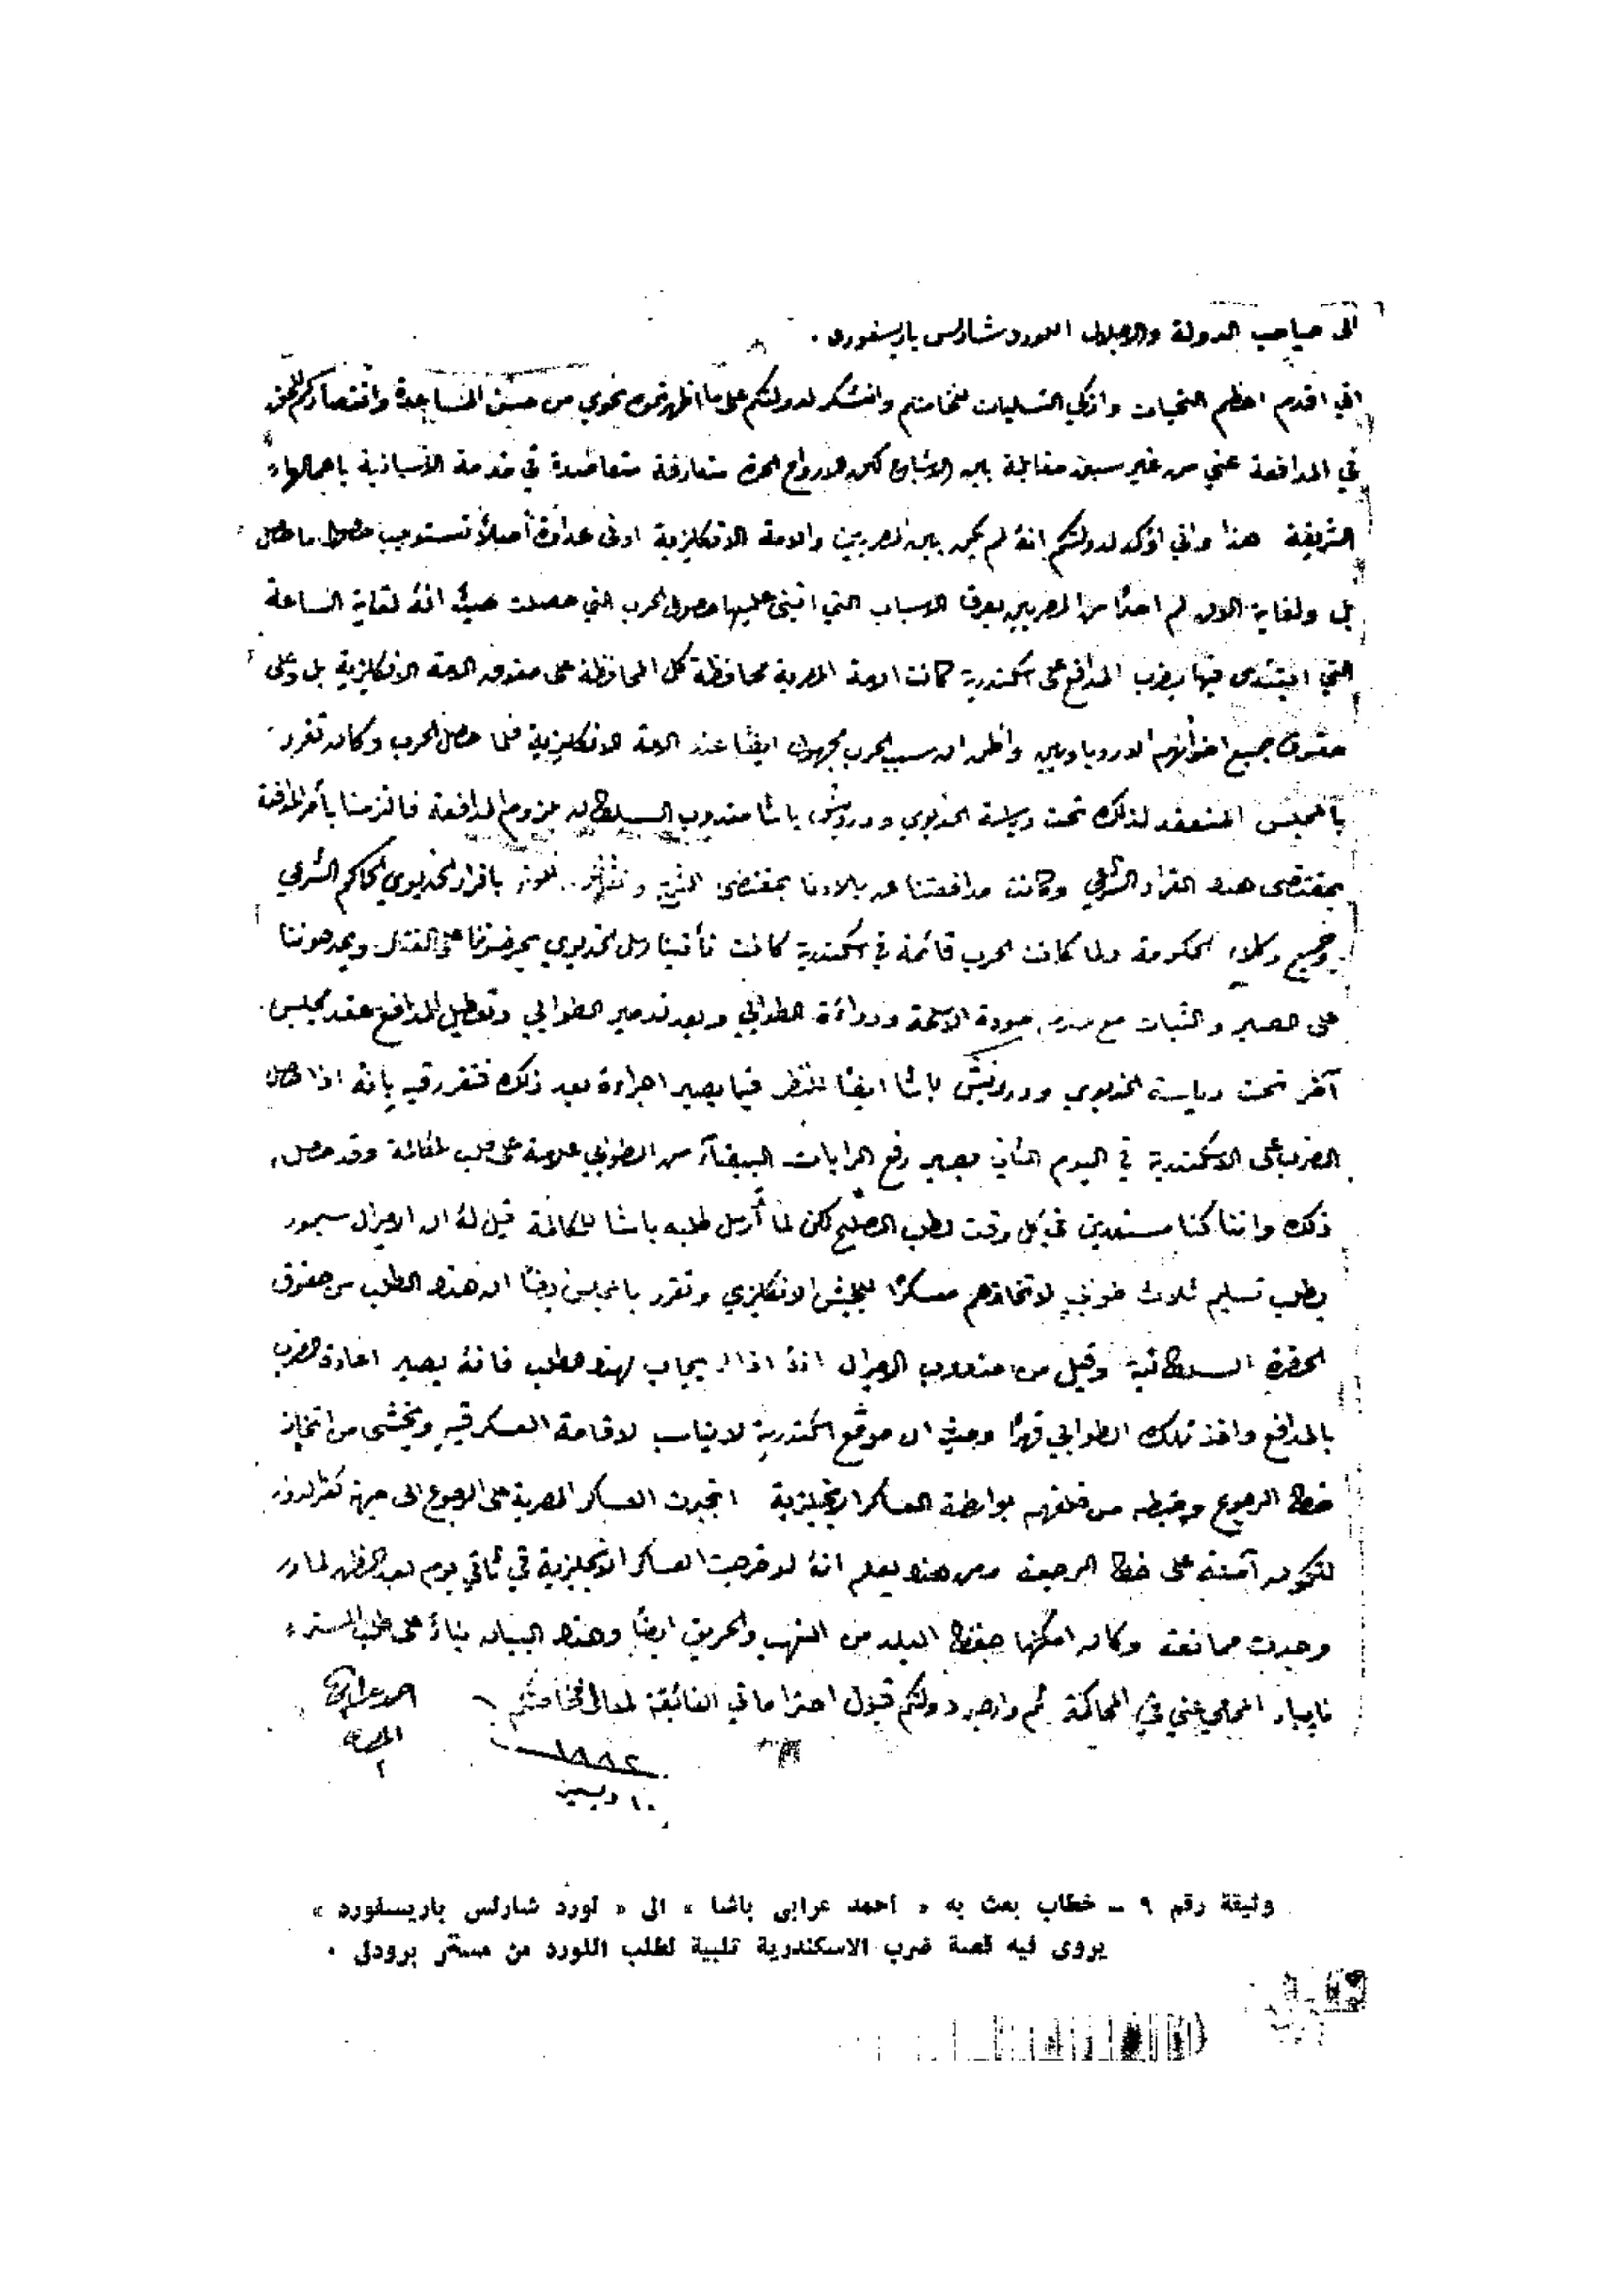 الى صاحب الدولة والاجلال اللورد شارلس باريسفورد .
اني اقدم اعظم التحيات وازكي التسليمات لفخامتكم واتشكر لدولتكم على ما اظهرتموه نحوي من حسن المساعدة وانتصاركم للحق
في المدافعة عني من غير سبق مقابلة بين الاشباح لكن الارواح الحرة متعارفة متعاضدة في خدمة الانسانية باعمالها
الشريفة هذا واني اؤكد لدولتكم انهُ لم يكن بين المصريين والامة الانكليزية ادنى عداوة أصلاً تستوجب حصول ما حصل
بل ولغاية الان لم احدًا من المصريين يعرف الاسباب التي انبنى عليها حصول الحرب التي حصلت حيث انهُ لغاية الساعة
التي ابتدئ فيها بضرب المدافع على اسكندرية كانت الامة المصرية محافظة كل المحافظة على حقوق الامة الانكليزية بل وعلى
حقوق جميع اخوانهم الاوروباويين واظن ان سبب الحرب مجهول ايضًا عند الامة الانكليزية فلما حصل الحرب وكان تقرر
بالمجلس المنعقد لذلك تحت رياسة الخديوي ودرويش باشا مندوب السلطان بلزوم المدافعة فالتزمنا بأمر المدافعة
بمقتضى هذا القرار الشرعي وكانت مدافعتنا عن بلادنا بمقتضى باقرار الخديوي الحاكم الشرعي
وجميع وكلاء الحكومة ولما كانت الحرب قائمة في اسكندرية كانت تأتينا رسل الخديوي يحرضوننا على القتال ويمدحوننا
على الصبر والثبات مع عدم جودة الاسلحة ورداءة الطوابي وبعد تدمير الطوابي وتعطيل المدافع عقد مجلس
آخر تحت رياسة الخديوي ودرويش باشا ايضًا للنظر فيما يصير اجراءه بعد ذلك فتقرر فيه بانه اذا حصل
الضرب على الاسكندرية في اليوم الثاني يصير رفع الرايات البيضآء من الطوابي علامة على طلب المكالمة وقد حصل
ذلك واننا كنا مستعدين في كل وقت لطلب الصلح لكن لما أُرسل طلبه باشا للمكالمة قيل لهُ ان الاميرال سيمور
يطلب تسليم ثلاث طوابي لاتخاذهم معسكرًا للجيش الانكليزي وتقرر بالمجلس ايضًا ان هذا الطلب من حقوق
الحضرة السلطانية وقيل من مندوب الاميرال انهُ اذا لا يجاب لهذا الطلب فانهُ يصير اعادة الضرب
بالمدافع واخذ تلك الطوابي قهرًا وحيث ان موقع اسكندرية لا يناسب لاقامة العسكر فيه ويخشى من اتخاذ
خط الرجوع وضبطه من خلفهم بواسطة العساكر الانجليزية انجبرت العساكر المصرية على الرجوع الى جهة كفر الدوار
لتكون آمنة على خط الرجعة ومن هذا يعلم انهُ لو خرجت العساكر الانجليزية في ثاني يوم بعد الظهر لما
وجدت ممانعة وكان امكنها حفظ البلد من النهب والحريق ايضًا وهذا البيان بناءً على طلب المستر
نابيار المحامي عني في المحاكمة ثم وارجو دولتكم قبول احتراماتي الفائقة لمعالي فخامتكم
احمد عرابي
المصري
١٨٨٢
١٠ ديسمبر
وثيقة رقم ٩ ــ خطاب بعث به « احمد عرابى باشا » الى « لورد شارلس باريسفورد »
يروى فيه قصة ضرب الاسكندرية تلبية لطلب اللورد من مستر برودلى .